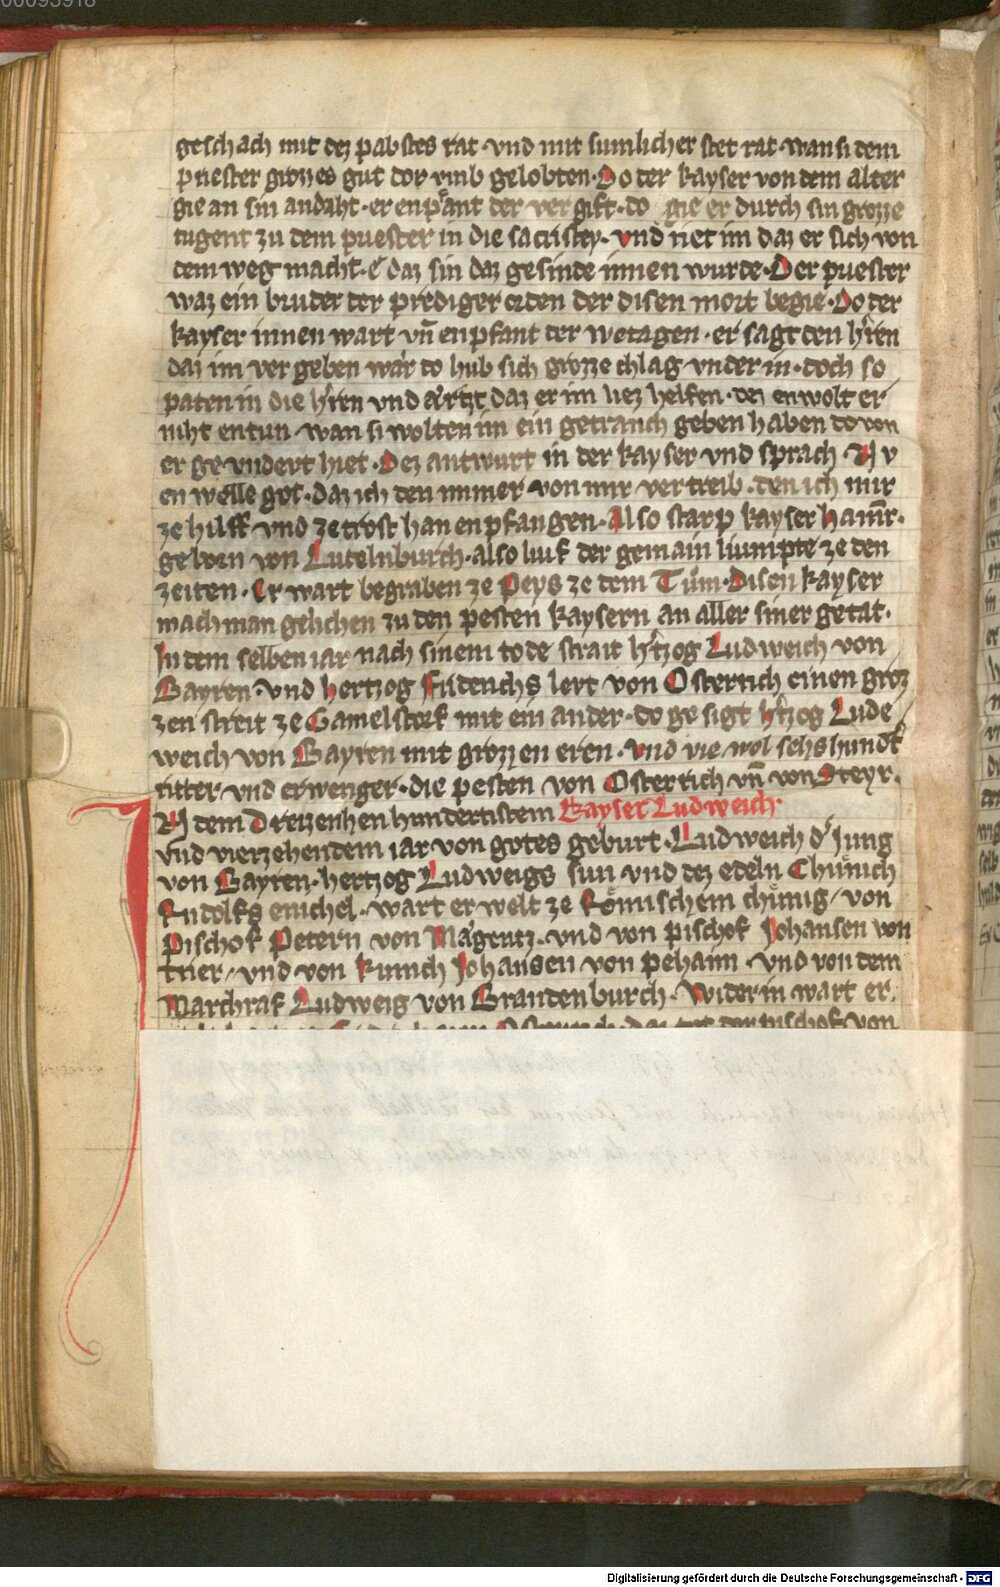 geschach mit dez pabstes rat · vnd mit sumlicher stet rat · wan si dem
priester grozzes gut dor vmb gelobten · Do der kayser von dem alter
gie an sin andaht · er enpfant der vergift · do gie er durch sin grozze
tugent zu dem priester in die sacristey · vnd riet im daz er sich von
dem weg macht · e daz sin daz gesinde innen wurde · Der priester
waz ein bruder der prediger orden der disen mort begie · Do der
kayser innen wart vn̄ enpfant der wetagen · er sagt den h̄ren
daz im vergeben wär do hub sich grozze chlag vnder in · doch so
paten in die h̄ren vnd ärtzt daz er im liez helfen · dez enwolt er
niht entun · wan si wolten im ein getranch geben haben do von
er gevndert hiet · Dez antwurt in der kayser vnd sprach · Nv
en welle got · daz ich den immer von mir vertreib · den ich mir
ze hilff vnd ze trost han enpfangen · Also starp kayser hainr̄ ·
geborn von Lutzelnburch · also luif der gemain liumpte ze den
zeiten · Er wart begraben ze Peys ze dem Tům · Disen kayser
mach man gelichen zu den pesten kaysern an aller siner getat ·
In dem selben iar nach sinem tode strait h̄tzog Ludweich von
Bayren · vnd hertzog Fridenchs lert von Osterrich einen groz
zen streit ze Gamelstorf mit ein ander · do gesigt h̄tzog Lude
weich von Bayren mit grozzen eren · Vnd vie wol sehshundt
ritter vnd erwenger · die pesten von Osterrich vn̄ von Steyr ·
IN dem Dreizenhenhundertistem Kayser Ludweich ·
vnd vierzehendem iar von gotes geburt · Ludweich d' Jung
von Bayren · hertzog Ludweigs sun vnd dez edeln Chůnich
Rudolfs enichel · wart erwelt ze Römischem chůnig / von
Pischof Petern von Mägentz · vnd von pischof Johansen von
trier / vnd von kunich Johansen von pehaim · vnd von dem
Marchraf Ludweig von Brandenburch · Wider in wart er